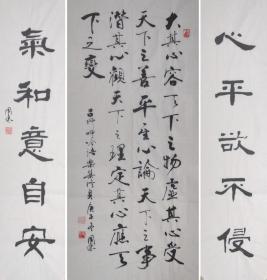 心平欲不侵
大其心容天下之物虛其心受
天下之善平其心論天下之事
潛其心觀天下之理定其心應天
下之變
吕坤呻吟语
氣和意自安